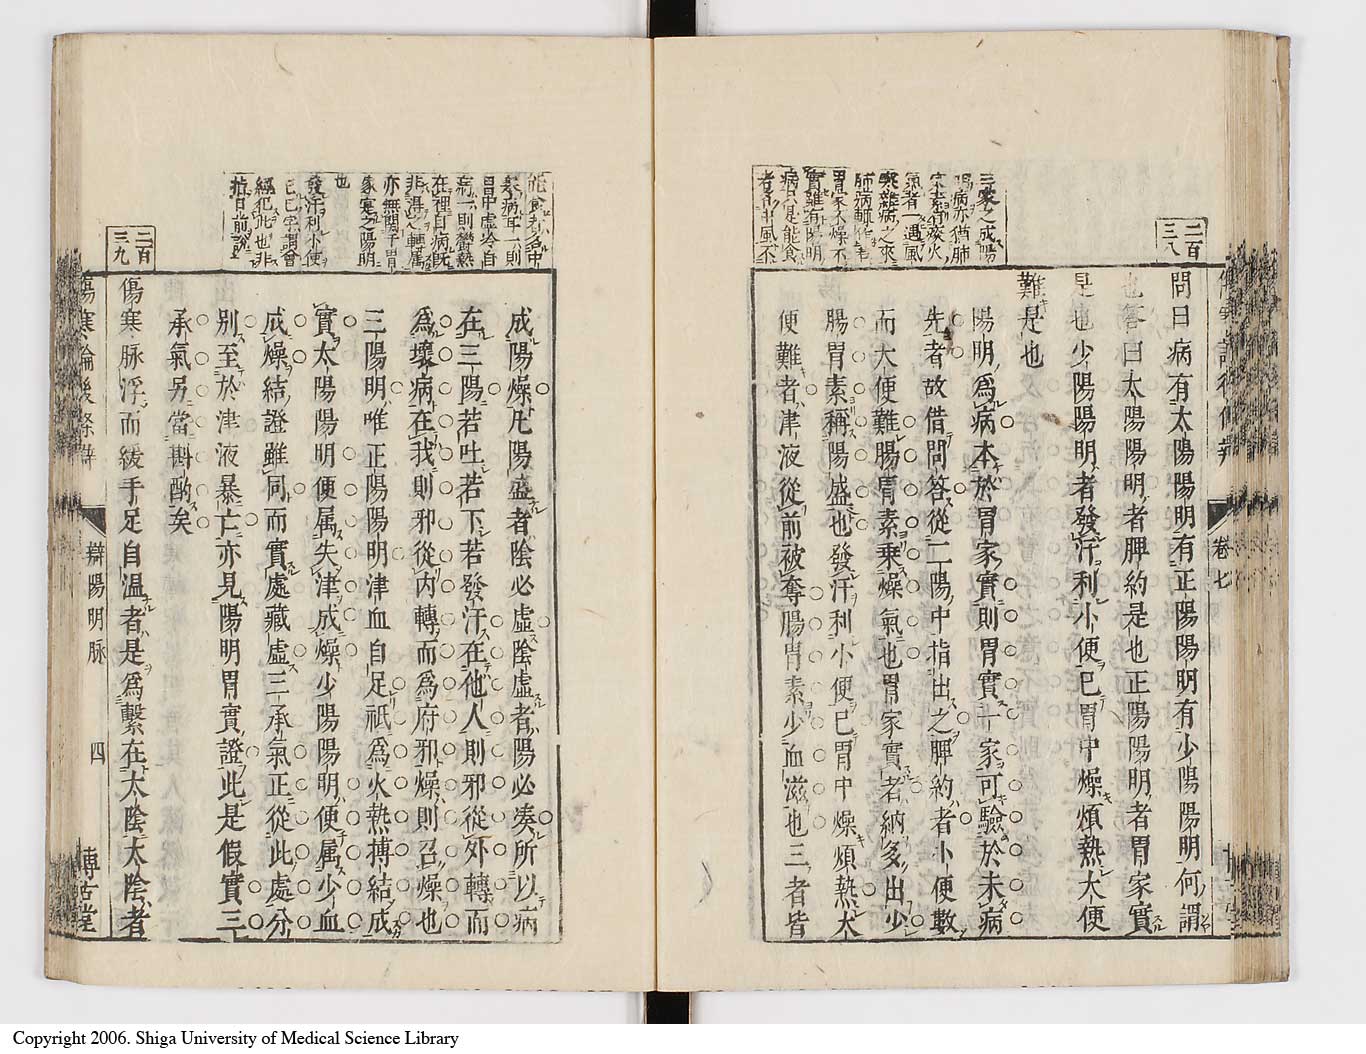 二百
三八
問曰病有太陽陽明有正陽陽明有少陽陽明何謂
也答曰太陽陽明者脾約是也正陽陽明者胃家實
是也少陽陽明者發汗利小便已胃中燥煩熱大便
難是也
陽明爲病本於胃家實則胃實十家可驗於未病
先者故借問答從二陽中指出之脾約者小便數
而大便難腸胃素乘燥氣也胃家實者納多出少
腸胃素稱陽盛也發汗利小便已胃中燥煩熱大
便難者津液從前被奪腸胃素少血滋也三者皆
三家之成陽
陽病亦猶肺
氣者一遇風
寒雜病之來
肺病輒作
胃家太燥不
實雖有陽明
病只是能食
者名中風不
卷七
能食者名中
寒病耳一則
胃中虛冷自
病一則鬱熱
在裡自病旣
非得之轉屬
亦無關乎胃
家寔之陽明
也
發汗利小便
已已字謂會
經犯此也非
指目前說
成陽燥凡陽盛者陰必虛陰虛者陽必湊所以病
在三陽若吐若下若發汗在他人則邪從外轉而
爲壞病在我則邪從内轉而爲府邪燥則召燥也
三陽明唯正陽陽明津血自足祇爲火熱搏結成
實太陽陽明便属失津成燥少陽陽明便属少血
成燥結證雖同而實處藏虛三承氣正從此處分
別至於津液暴亡亦見陽明胃實證此是假實三
承氣另當斟酌矣
二百
三九
傷寒脉浮而緩手足自温者是爲繫在太陰太陰者
傷寒論後條辯
辯陽明脉
四
博古堂
Copyright 2006. Shiga University of Medical Science Library